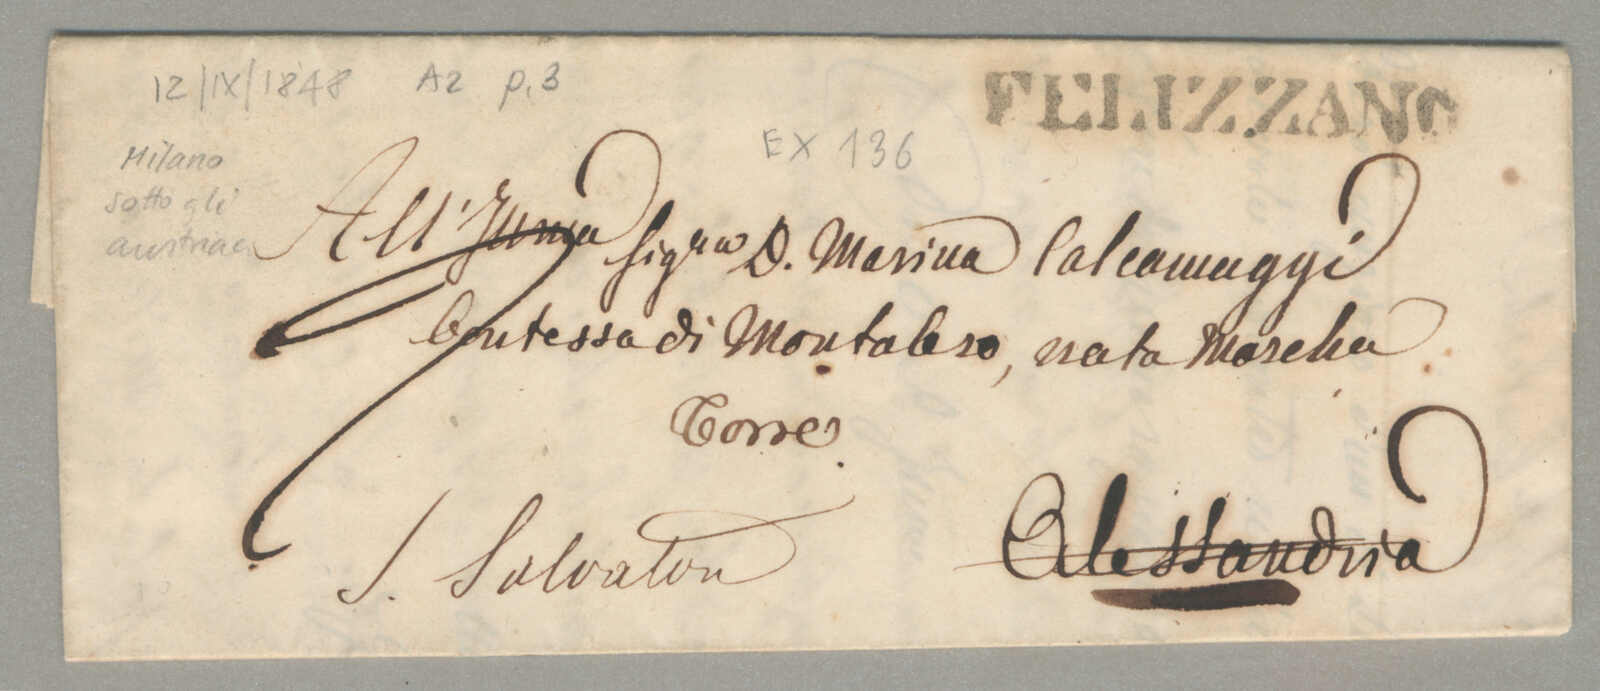 12/IX/1848 A2 p.3
FELIZZANO
EX 136
Milano
sotto gli
austriaci
All' Illma Sigra D. Marina Calcamuggi
Contessa di Montalero, nata Moscha
Torre
S. Salvatore
Alessandria